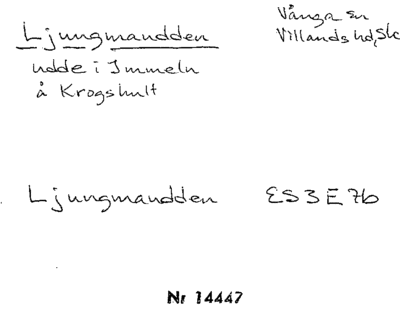 Ljungmaudden
udde i Immeln
å Krogshult
Vånga sn
Villands hd, Sk
Ljungmaudden ES3E7b
Nr 14447